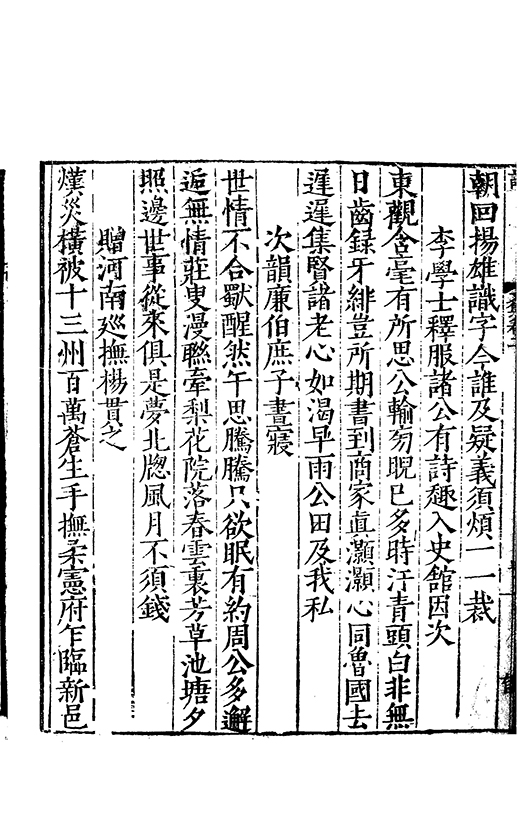 朝回揚雄識字今誰及疑義須煩一一裁
李學士釋服諸公有詩趣入史館因次
東觀含毫有所思公輸旁睨已多時汗青頭白非無
日齒録牙緋豈所期書到商家直灝灝心同魯國去
遲遲集賢諸老心如渴早雨公田及我私
次韻廉伯庶子晝寢
世情不合獨醒然午思騰騰只欲眠有約周公多邂
逅無情莊叟漫聯牽梨花院落春雲裏芳草池塘夕
照邊世事從來俱是夢北牕風月不須錢
贈河南廵撫楊貫之
熯災橫被十三州百萬蒼生手撫柔憲府乍臨新邑